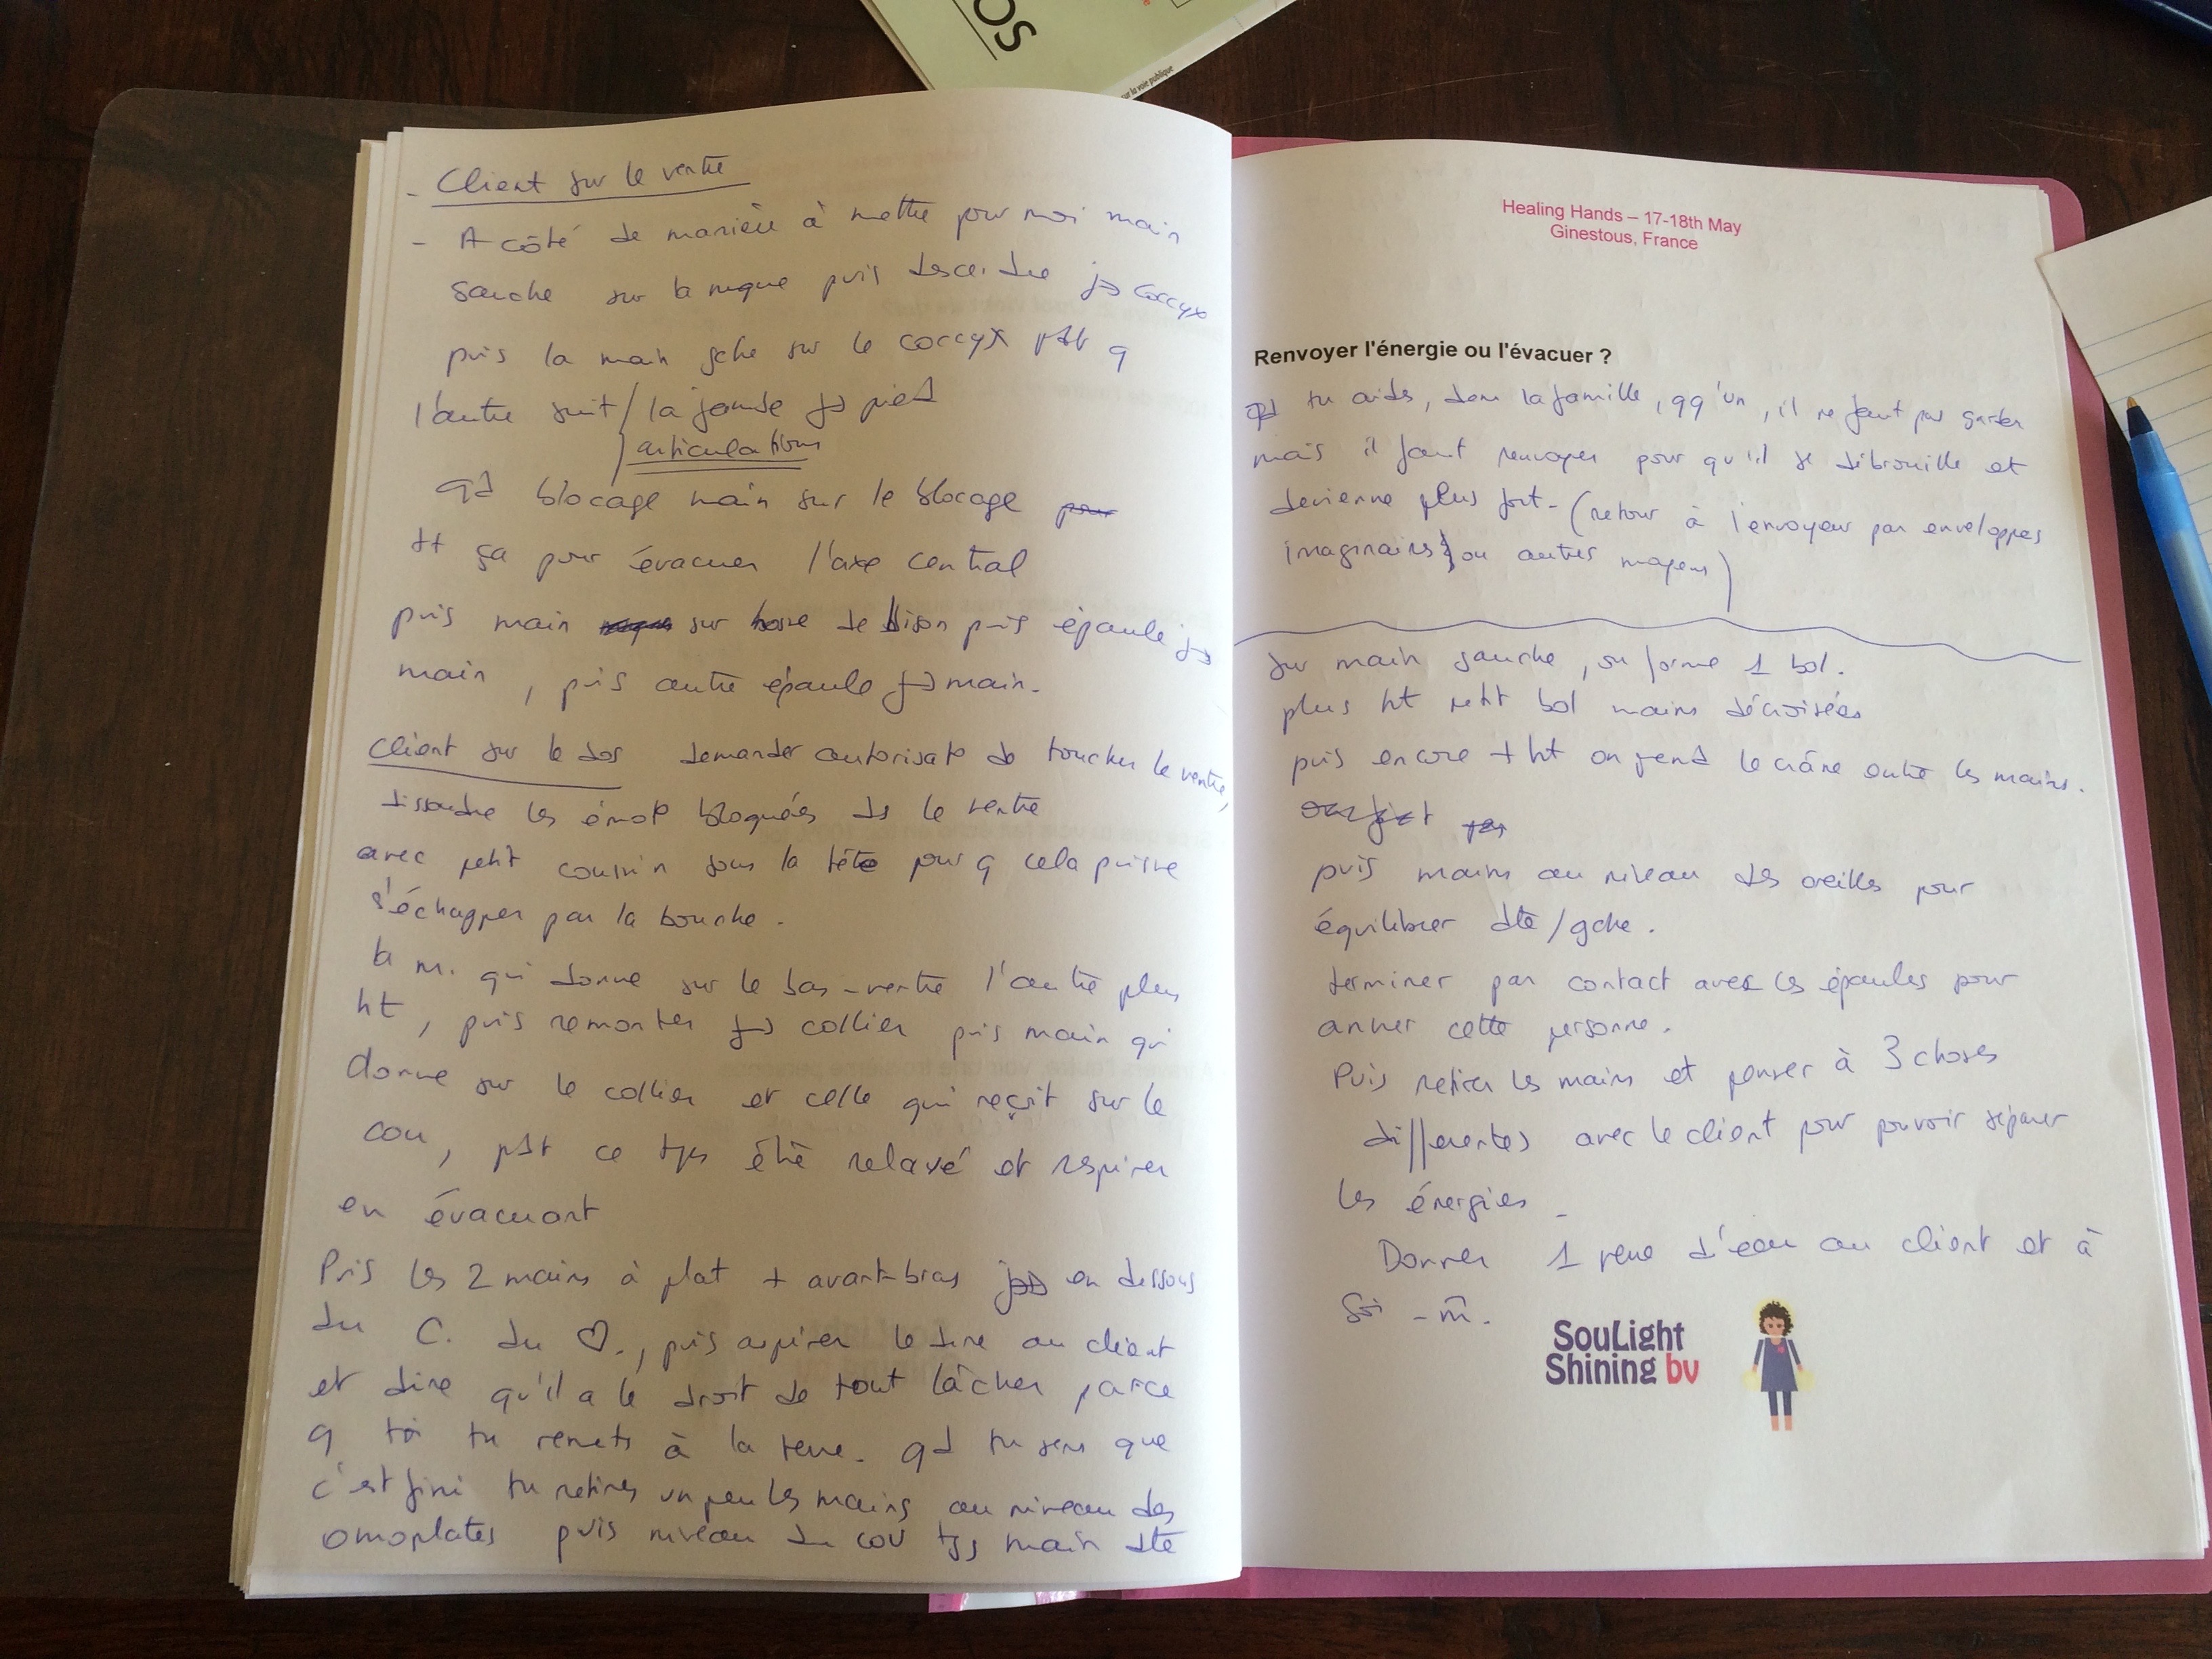 OS
sur la voie publique
- Client sur le ventre
- A côté de manière à mettre pour moi main
gauche sur la nuque puis descendre js coccyx
puis la main gche sur le coccyx pdt q
l'autre suit / la jambe js pied
articulations
qd blocage main sur le blocage pour
tt ça pour évacuer l'axe central
puis main sur bosse de bison puis épaule js
main, puis autre épaule js main.
Client sur le dos demander autorisat° de toucher le ventre,
dissoudre les émot° bloquées ds le ventre
avec petit coussin sous la tête pour q cela puisse
s'échapper par la bouche.
la m. qui donne sur le bas-ventre l'autre plus
ht, puis remonter js collier puis main qui
donne sur le collier et celle qui reçoit sur le
cou, pdt ce tps être relaxé et respirer
en évacuant
Puis les 2 mains à plat + avant-bras jsq en dessous
du C. du ♡., puis aspirer le dire au client
et dire qu'il a le droit de tout lâcher parce
q toi tu remets à la terre. qd tu sens que
c'est fini tu retires un peu les mains au niveau des
omoplates puis niveau du cou tjs main dte
Healing Hands – 17-18th May
Ginestous, France
Renvoyer l'énergie ou l'évacuer ?
Qd tu aides, dans la famille, qq'un, il ne faut pas garder
mais il faut renvoyer pour qu'il se débrouille et
devienne plus fort - (retour à l'envoyeur par enveloppes
imaginaires} ou autres moyens)
sur main gauche, on forme 1 bol.
plus ht petit bol mains décroisées
puis encore + ht on prend le crâne entre les mains.
puis mains au niveau des oreilles pour
équilibrer dte/gche.
terminer par contact avec les épaules pour
ancrer cette personne.
Puis retirer les mains et penser à 3 choses
différentes avec le client pour pouvoir séparer
les énergies -
Donner 1 verre d'eau au client et à
soi - m̂.
SouLight
Shining bv